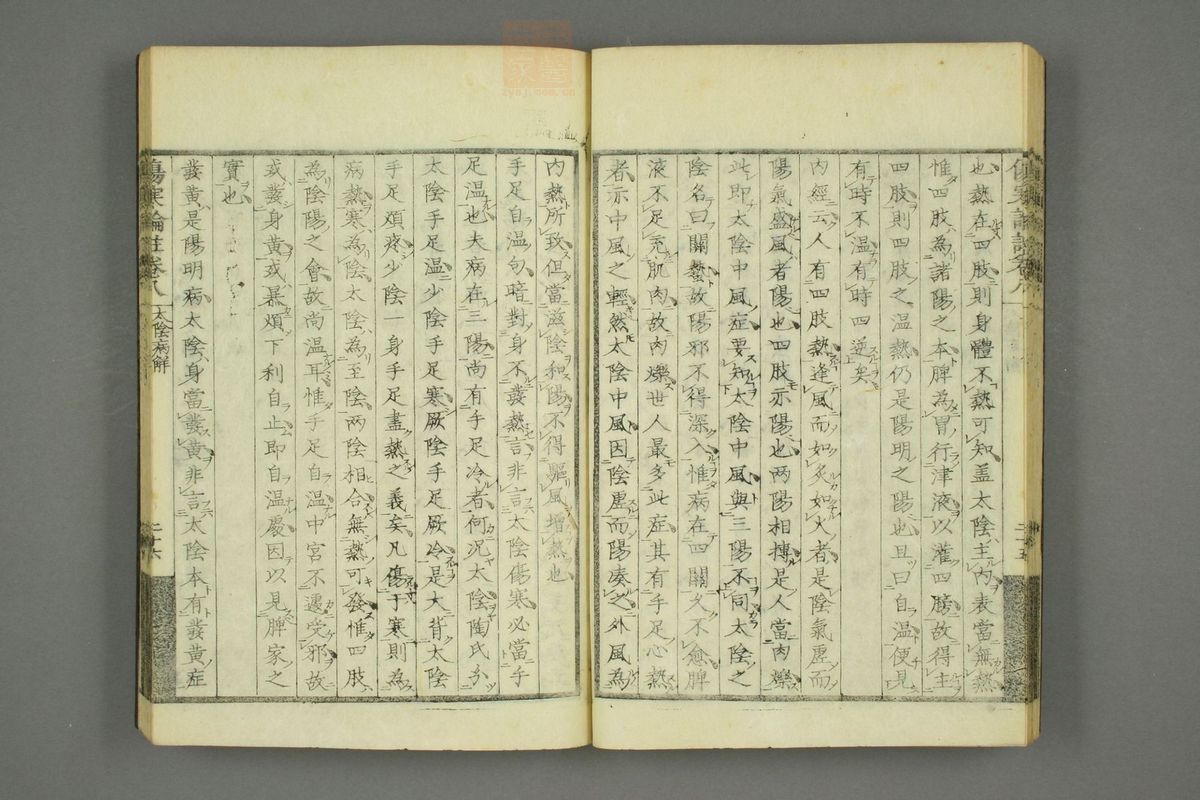 也熱在四肢則身體不熱可知盖太陰主内表當無熱
惟四肢為諸陽之本脾為胃行津液以灌四旁故得主
四肢則四肢之温熱仍是陽明之陽也且曰自温便見
有時不温有時四逆矣
内經云人有四肢熱逢風而如炙如火者是陰氣虚而
陽氣盛風者陽也四肢亦陽也两陽相摶是人當肉爍
此即太陰中風症要知太陰中風與三陽不同太陰之
陰名曰關蟄故陽邪不得深入惟病在四關久不愈脾
液不足充肌肉故肉爍世人最多此症其有手足心熱
者亦中風之輕然太陰中風因陰虚而陽凑之外風為
内熱所致但當滋陰和陽不得驅風增熱也
手足自温句暗對身不發熱言非言太陰傷寒必當手
足温也夫病在三陽尚有手足冷者何況太陰陶氏分
太陰手足温少陰手足寒厥陰手足厥冷是大背太陰
手足煩疼少陰一身手足盡熱之義矣凡傷于寒則為
病熱寒為陰太陰為至陰两陰相合無熱可發惟四肢
為陰陽之會故尚温耳惟手足自温中宮不遽受邪故
或發身黄或暴煩下利自止即自温處因以見脾家之
實也
發黄是陽明病太陰身當發黄非言太陰本有發黄症
傷寒論註卷八
太陰病解
二十六
二十五
zysj.com.cn